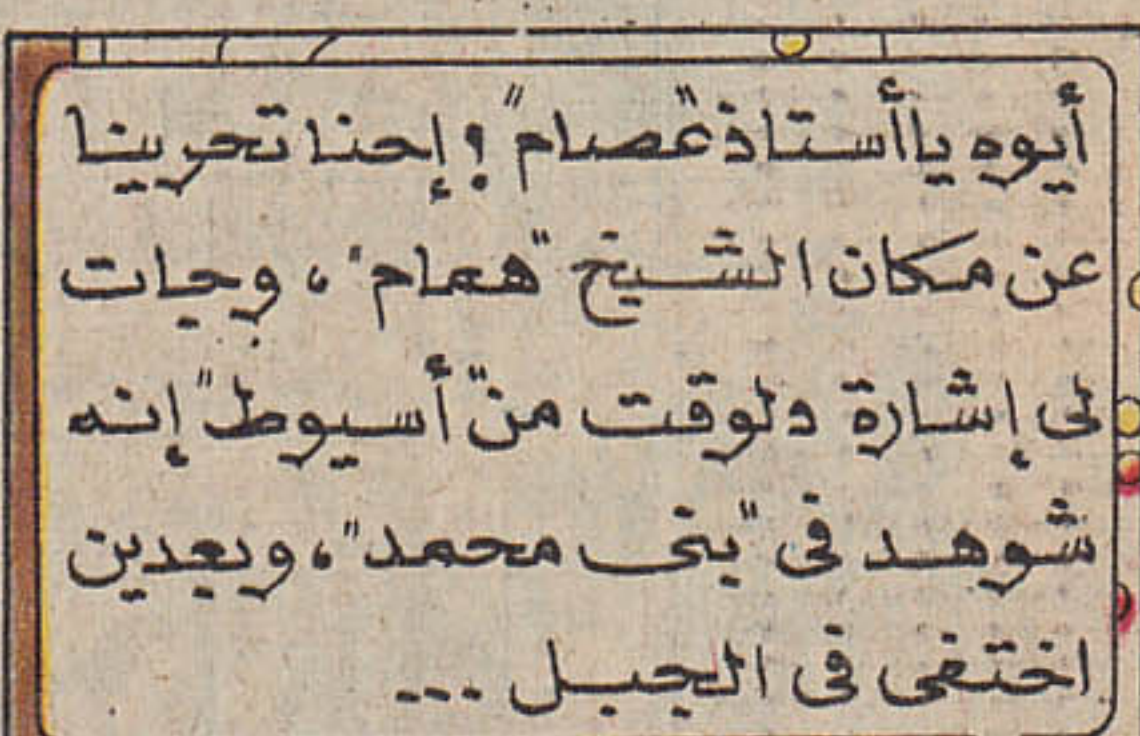 أيوه ياأستاذ "عصام" ؟ إحنا تحرينا
عن مكان الشيخ "همام" ، وجات
لى إشارة دلوقت من "أسيوط" إنه
شوهد فى "بنى محمد" ، وبعدين
اختفى فى الجبل ...